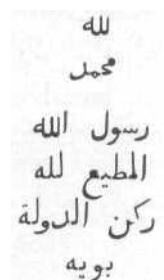 لله
محمد
رسول الله
المطيع لله
ركن الدولة
بويه